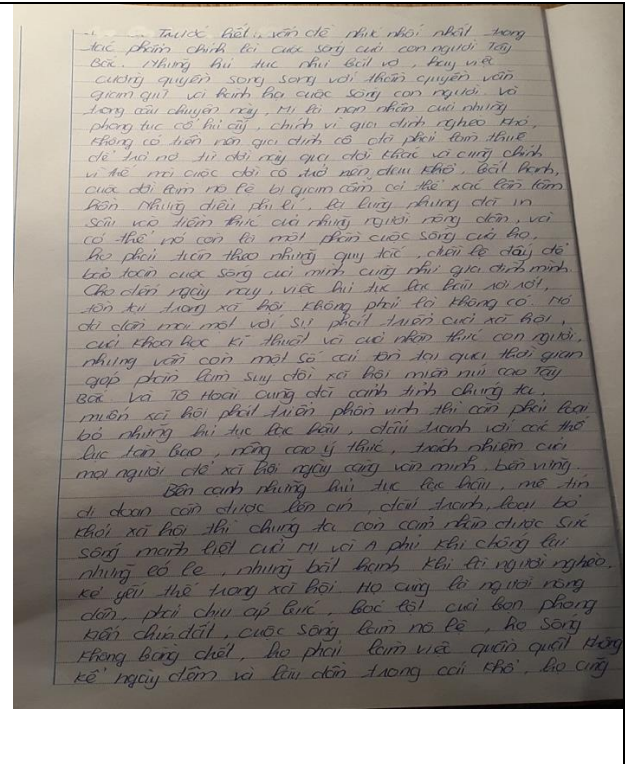 Trước hết, vấn đề nhức nhối nhất trong
tác phẩm chính là cuộc sống của con người Tây
Bắc. Những hủ tục như bắt vợ, hay việc
cường quyền song song với thần quyền vẫn
giam giữ và hành hạ cuộc sống con người. Và
trong câu chuyện này, Mị là nạn nhân của những
phong tục cổ hủ ấy, chính vì gia đình nghèo khó,
không có tiền nên gia đình cô đã phải làm thuê
để trả nợ từ đời này qua đời khác và cũng chính
vì thế mà cuộc đời cô trở nên đau khổ, bất hạnh,
cuộc đời làm nô lệ bị giam cầm cả thể xác lẫn tâm
hồn. Những điều phi lí, lạ lùng nhưng đã in
sâu vào tiềm thức của những người nông dân, và
có thể nó còn là một phần cuộc sống của họ,
họ phải tuân theo những quy tắc, luật lệ đấy để
bảo toàn cuộc sống của mình cũng như gia đình mình.
Cho đến ngày nay, việc hủ tục lạc hậu rơi rớt,
tồn tại trong xã hội không phải là không có. Nó
đã dần mai một với sự phát triển của xã hội,
của khoa học kĩ thuật và của nhận thức con người,
nhưng vẫn còn một số cái tồn tại qua thời gian
góp phần làm suy đồi xã hội miền núi cao Tây
Bắc. Và Tô Hoài cũng đã cảnh tỉnh chúng ta,
muốn xã hội phát triển phồn vinh thì cần phải loại
bỏ những hủ tục lạc hậu, đấu tranh với các thế
lực tàn bạo, nâng cao ý thức, trách nhiệm của
mọi người để xã hội ngày càng văn minh, bền vững.
Bên cạnh những hủ tục lạc hậu, mê tín
dị đoan cần được lên án, đấu tranh, loại bỏ
khỏi xã hội thì chúng ta còn cảm nhận được sức
sống mãnh liệt của Mị và A phủ khi chống lại
những lẽ, những bất hạnh khi là người nghèo,
kẻ yếu thế trong xã hội. Họ cũng là người nông
dân, phải chịu áp bức, bóc lột của bọn phong
kiến chúa đất, cuộc sống làm nô lệ, họ sống
không bằng chết, họ phải làm việc quần quật không
kể ngày đêm và lâu dần trong cái khổ, họ cũng